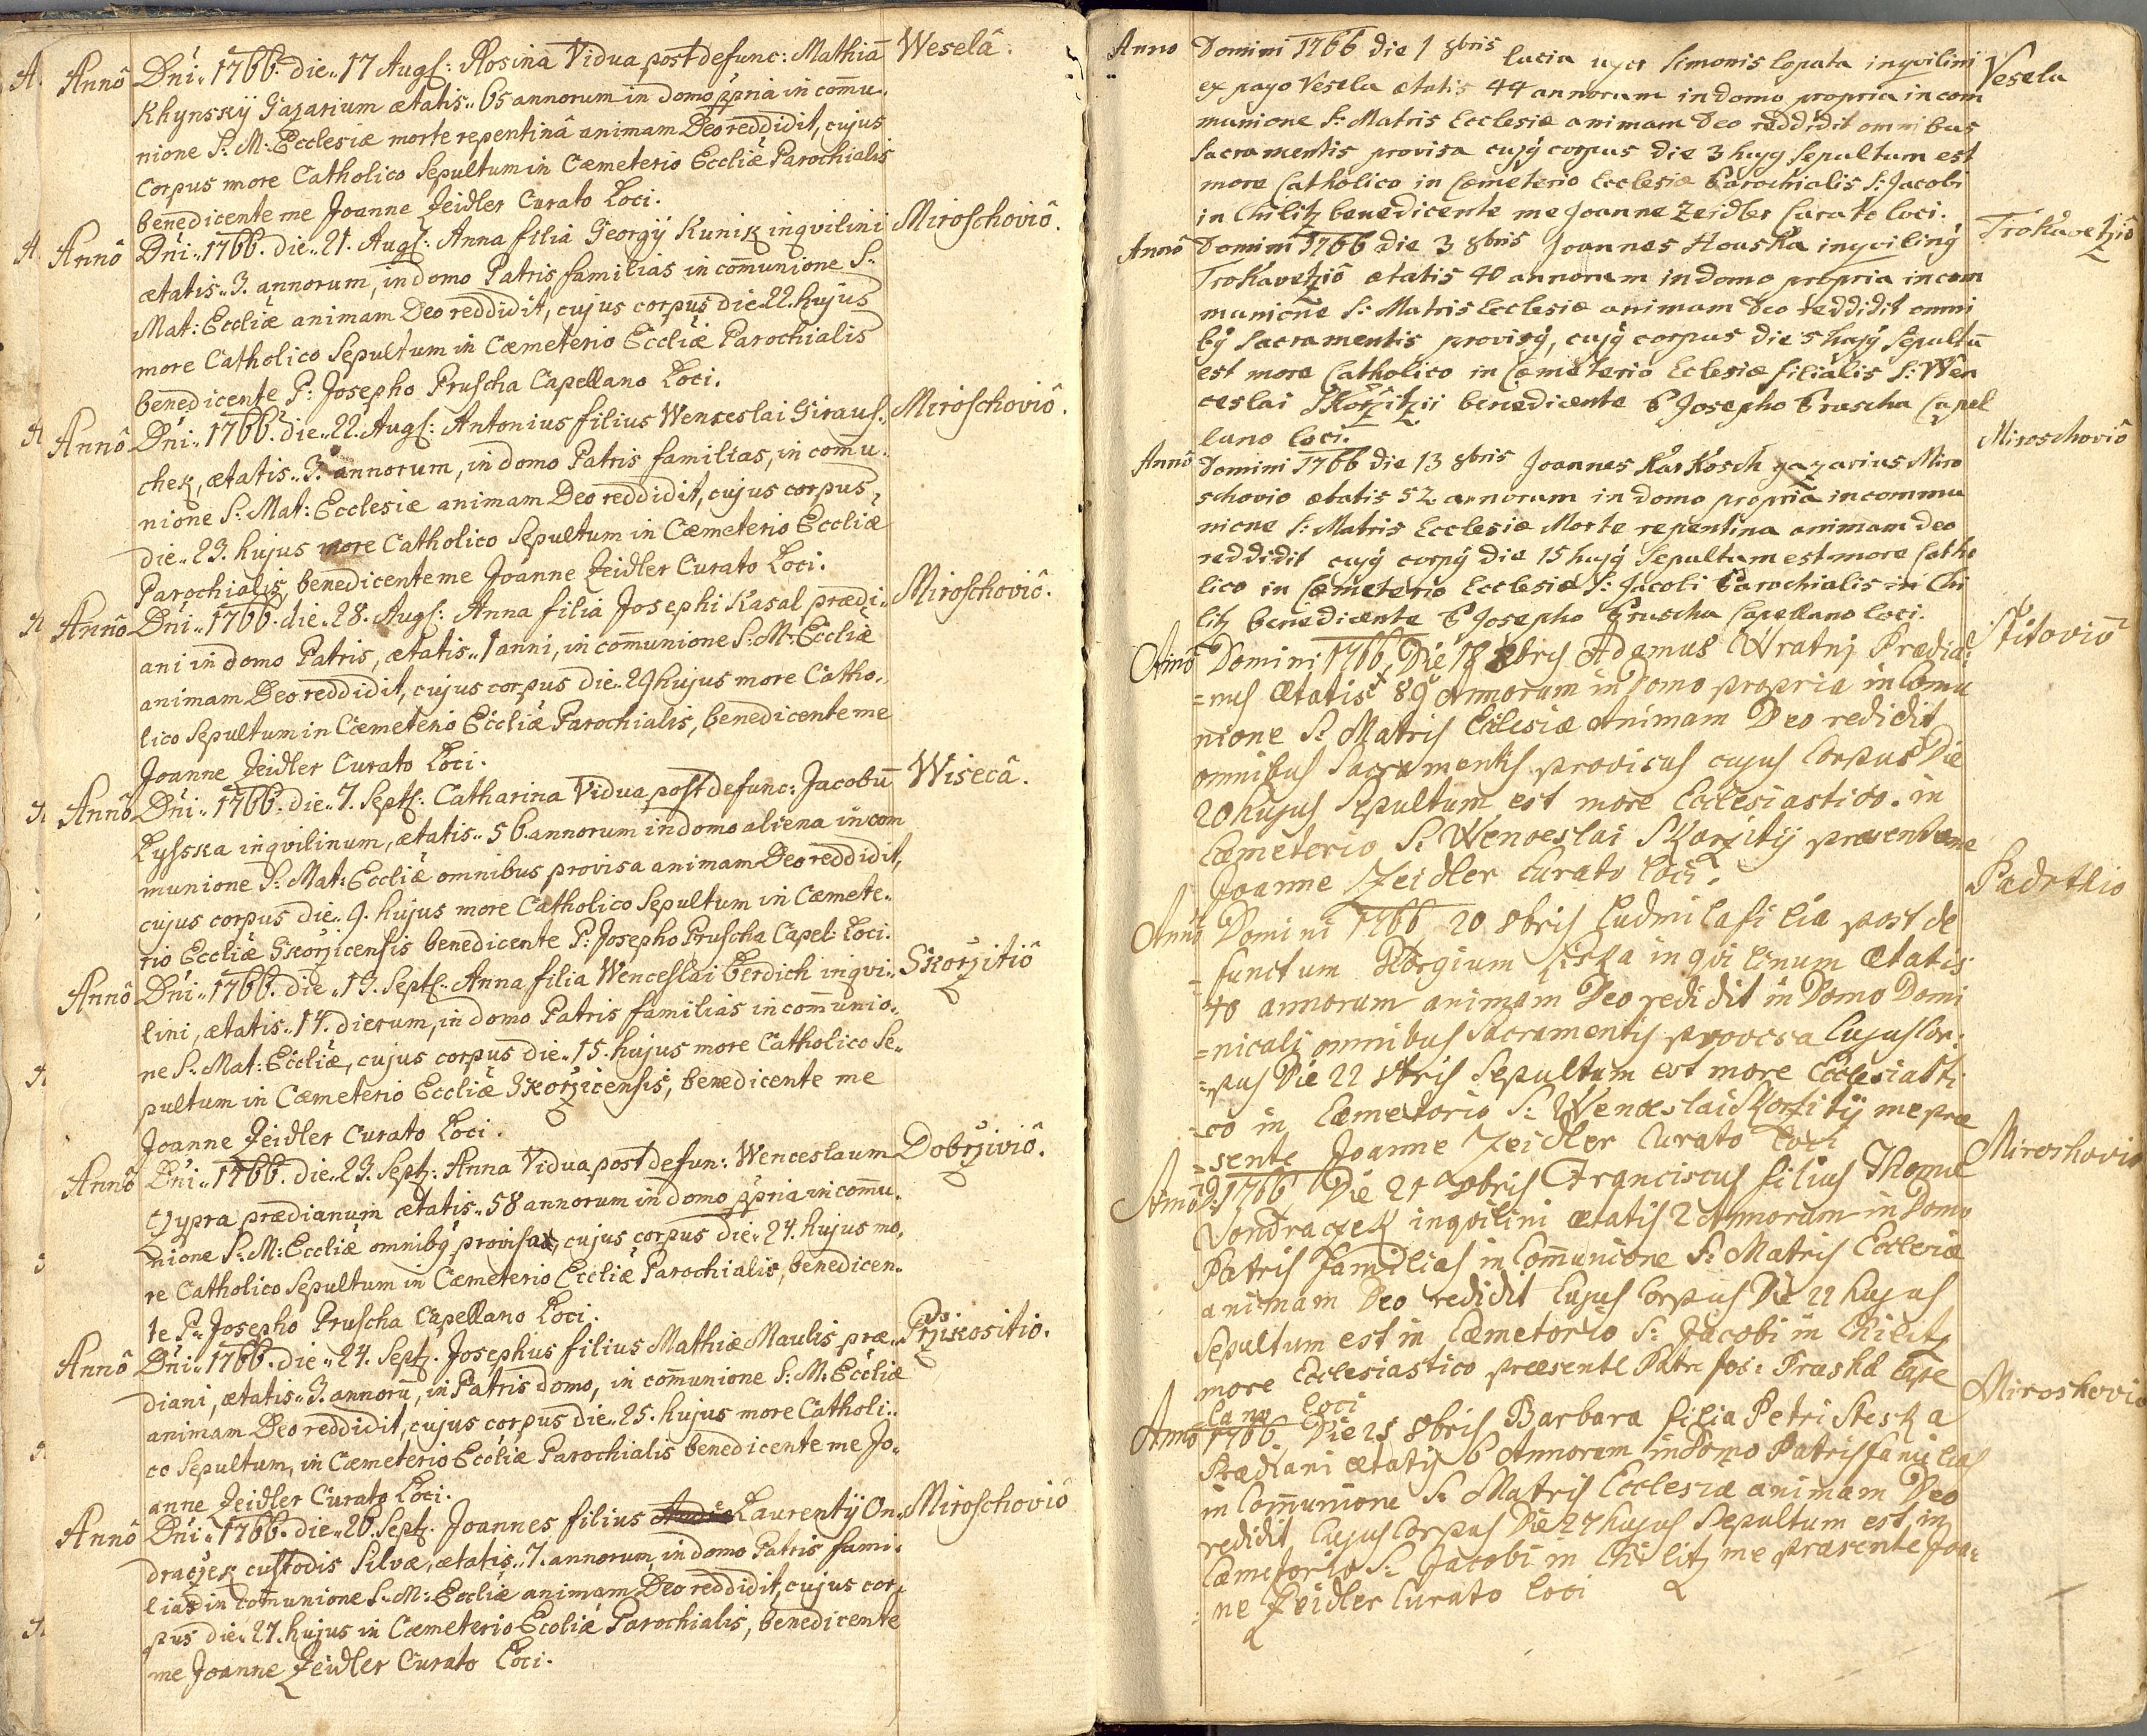 Annô Dni: 1766. die 17 Augs: Rosina Vidua post defunc: Mathiā Weselâ.
Khynskÿ Gazarium ætatis 65 annorum in domo ppria in comu:
nione S: M: Ecclesiæ morte repentinâ animam Deo reddidit, cujus
Corpus more Catholico Sepultum in Cæmeterio Eccliæ Parochialis
benedicente me Joanne Zeidler Curato Loci.
Annô Dni: 1766. die 21. Augs: Anna filia Georgÿ Kunik inqvilini Miroschoviô.
ætatis 3. annorum, in domo Patris familias in com̄unione S:
Mat: Eccliæ animam Deo reddidit, cujus corpus die 22. hujus
more Catholico Sepultum in Cæmeterio Eccliæ Parochialis
benedicente P: Josepho Pruscha Capellano Loci.
Annô Dni: 1766. die 22. Augs: Antonius filius Wenceslai Giraus: Miroschoviô.
chek, ætatis 3. annorum, in domo Patris familias, in com̄u:
nione S: Mat: Ecclesiæ animam Deo reddidit, cujus corpus
die 23. hujus more Catholico Sepultum in Cæmeterio Eccliæ
Parochialis, benedicente me Joanne Zeidler Curato Loci.
Annô Dni: 1766. die 28. Augs: Anna filia Josephi Kasal prædi: Miroschoviô.
ani in domo Patris, ætatis 1 anni, in com̄unione S: M: Eccliæ
animam Deo reddidit, cujus corpus die 29 hujus more Catho:
lico Sepultum in Cæmeterio Eccliæ Parochialis, benedicente me
Joanne Zeidler Curato Loci.
Annô Dni: 1766. die 7. Septs: Catharina Vidua post defunc: Jacobū Wisecâ.
Lysska inqvilinum, ætatis 56. annorum in domo aliena in com
munione S: Mat: Eccliæ omnibus provisa animam Deo reddidit,
cujus corpus die 9. hujus more Catholico Sepultum in Cæmete:
rio Eccliæ Skorzicensis benedicente P: Josepho Pruscha Capel: Loci.
Annô Dni: 1766. die 13. Septs: Anna filia Wenceslai Berdich inqvi: Skorzitiô
lini, ætatis 14. dierum, in domo Patris familias in com̄unio:
ne S: Mat: Eccliæ, cujus corpus die 15. hujus more Catholico Se:
pultum in Cæmeterio Eccliæ Skorzicensis, benedicente me
Joanne Zeidler Curato Loci.
Annô Dni: 1766. die 23. Sept: Anna Vidua post defun: Wenceslaum Dobrziviô.
Czypra prædianum ætatis 58 annorum in domo ppria in com̄u:
nione S: M: Eccliæ omnibꝯ provisa, cujus corpus die 24. hujus mo:
re Catholico Sepultum in Cæmeterio Eccliæ Parochialis, benedicen:
te P: Josepho Pruscha Capellano Loci.
Annô Dni: 1766. die 24. Sept. Josephus filius Mathiæ Maulis præ: Przikositio.
diani, ætatis 3. annorū, in Patris domo, in com̄unione S: M: Eccliæ
animam Deo reddidit, cujus corpus die 25. hujus more Catholi:
co Sepultum, in Cæmeterio Eccliæ Parochialis benedicente me Jo:
anne Zeidler Curato Loci.
Annô Dni: 1766. die 26. Sept. Joannes filius Laurentÿ On: Miroschoviô
draczek custodis Silvæ, ætatis 7. annorum, in domo Patris fami:
lias in com̄unione S: M: Eccliæ animam Deo reddidit, cujus cor:
pus die 27. hujus in Cæmeterio Eccliæ Parochialis, benedicente
me Joanne Zeidler Curato Loci.
Anno Domini 1766 die 1 8bris Lucia uxor Simonis Lopata inqvilini Vesela
ex pago Vesela ætatis 44 annorum in domo propria in com
munione S: Matris Ecclesiæ animam Deo reddidit omnibus
Sacramentis provisa cujꝯ corpus die 3 hujꝯ Sepultum est
more Catholico in Cæmeterio Ecclesiæ Parochialis S: Jacobi
in Chilitz benedicente me Joanne Zeidler Curato loci.
Annô Domini 1766 die 3 8bris Joannes Houska inqvilinꝯ Trokavetziô
Trokavetziô ætatis 40 annorum in domo propria in com
munione S: Matris Ecclesiæ animam Deo reddidit omni
bꝯ Sacramentis provisꝯ, cujꝯ corpus die 5 hujꝯ Sepultū
est more Catholico in Cæmeterio Eclesiæ filialis S: Wen
ceslai Skorzitzii benedicente P Josepho Pruscha Capel
lano loci.
Annô Domini 1766 die 13 8bris Joannes Karkosch gazarius Miro Miroschoviô
schovio ætatis 52 annorum in domo propria in commu
nione S: Matris Ecclesiæ Morte repentina animam Deo
reddidit cujꝯ corpꝯ die 15 hujꝯ Sepultum est more Catho
lico in Cæmeterio Ecclesiæ S: Jacobi Parochialis in Chi
litz benedicente P Josepho Pruscha Capellano loci.
Annô Domini 1766, Die 18 8bris Adamus Wratni Prædia: Stitoviô
=nus Ætatis 89 Annorum in Domo propria in Comu
nione S: Matris Ecclesiæ Animam Deo redidit
omnibus Sacramentis provisus cujus Corpus Die
20 hujus Sepultum est more Ecclesiastico. in
Cæmeterio S: Wenceslai Skorzitÿ præsente me
Joanne Zeidler Curato loci.
Annô Domini 1766 20 8bris Ludmila filia post de Padrthio
=functum Georgium Liska inqvilinum Ætatis
40 annorum animam Deo redidit in Domo Domi
=nicali omnibus Sacramentis provisa Cujus Cor:
=pus Die 22 8bris Sepultum est more Ecclesiasti
=co in Cæmetorio S: Wenceslai Skorzitÿ me præ
=sente Joanne Zeidler Curato loci
Annô D: 1766 Die 21 8bris Franciscus filius Thomæ Miroshovio
Vondraczek inqvilini ætatis 2 Annorum in Domo
Patris familias in Com̄unione S: Matris Ecclesiæ
animam Deo redidit Cujus Corpus Die 22 hujus
Sepultum est in Cæmetorio S: Jacobi in Chilitz
more Ecclesiastico præsente Patre Jos: Pruska Cape
=lano loci
Annô 1766. Die 25 8bris Barbara filia Petri Steska Miroshovio
Prædiani ætatis 6 Annorum in Domo Patris familias
in Com̄unione S: Matris Ecclesiæ animam Deo
redidit Cujus Corpus Die 27 hujus Sepultum est in
Cæmetorio S: Jacobi in Chilitz me præsente Joa:
:ne Zeidler Curato loci